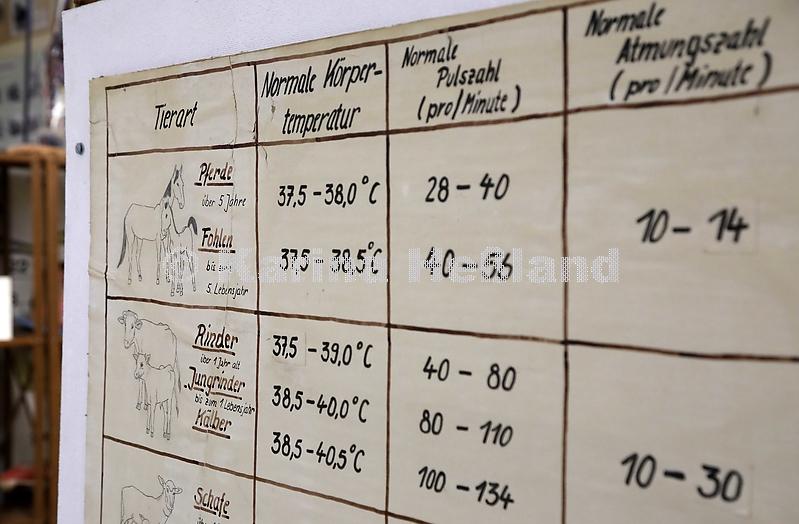 Tierart
Normale Körper-
temperatur
Normale
Pulszahl
(pro/Minute)
Normale
Atmungszahl
(pro/Minute)
Pferde
über 5 Jahre
37,5 - 38,0°C
28 - 40
10 - 14
Fohlen
bis zum
5. Lebensjahr
37,5 - 38,5°C
40 - 56
© Karina Heßland
Rinder
über 1 Jahr alt
37,5 - 39,0°C
40 - 80
10 - 30
Jungrinder
bis zum 1 Lebensjahr
38,5 - 40,0°C
80 - 110
Kälber
38,5 - 40,5°C
100 - 134
Schafe